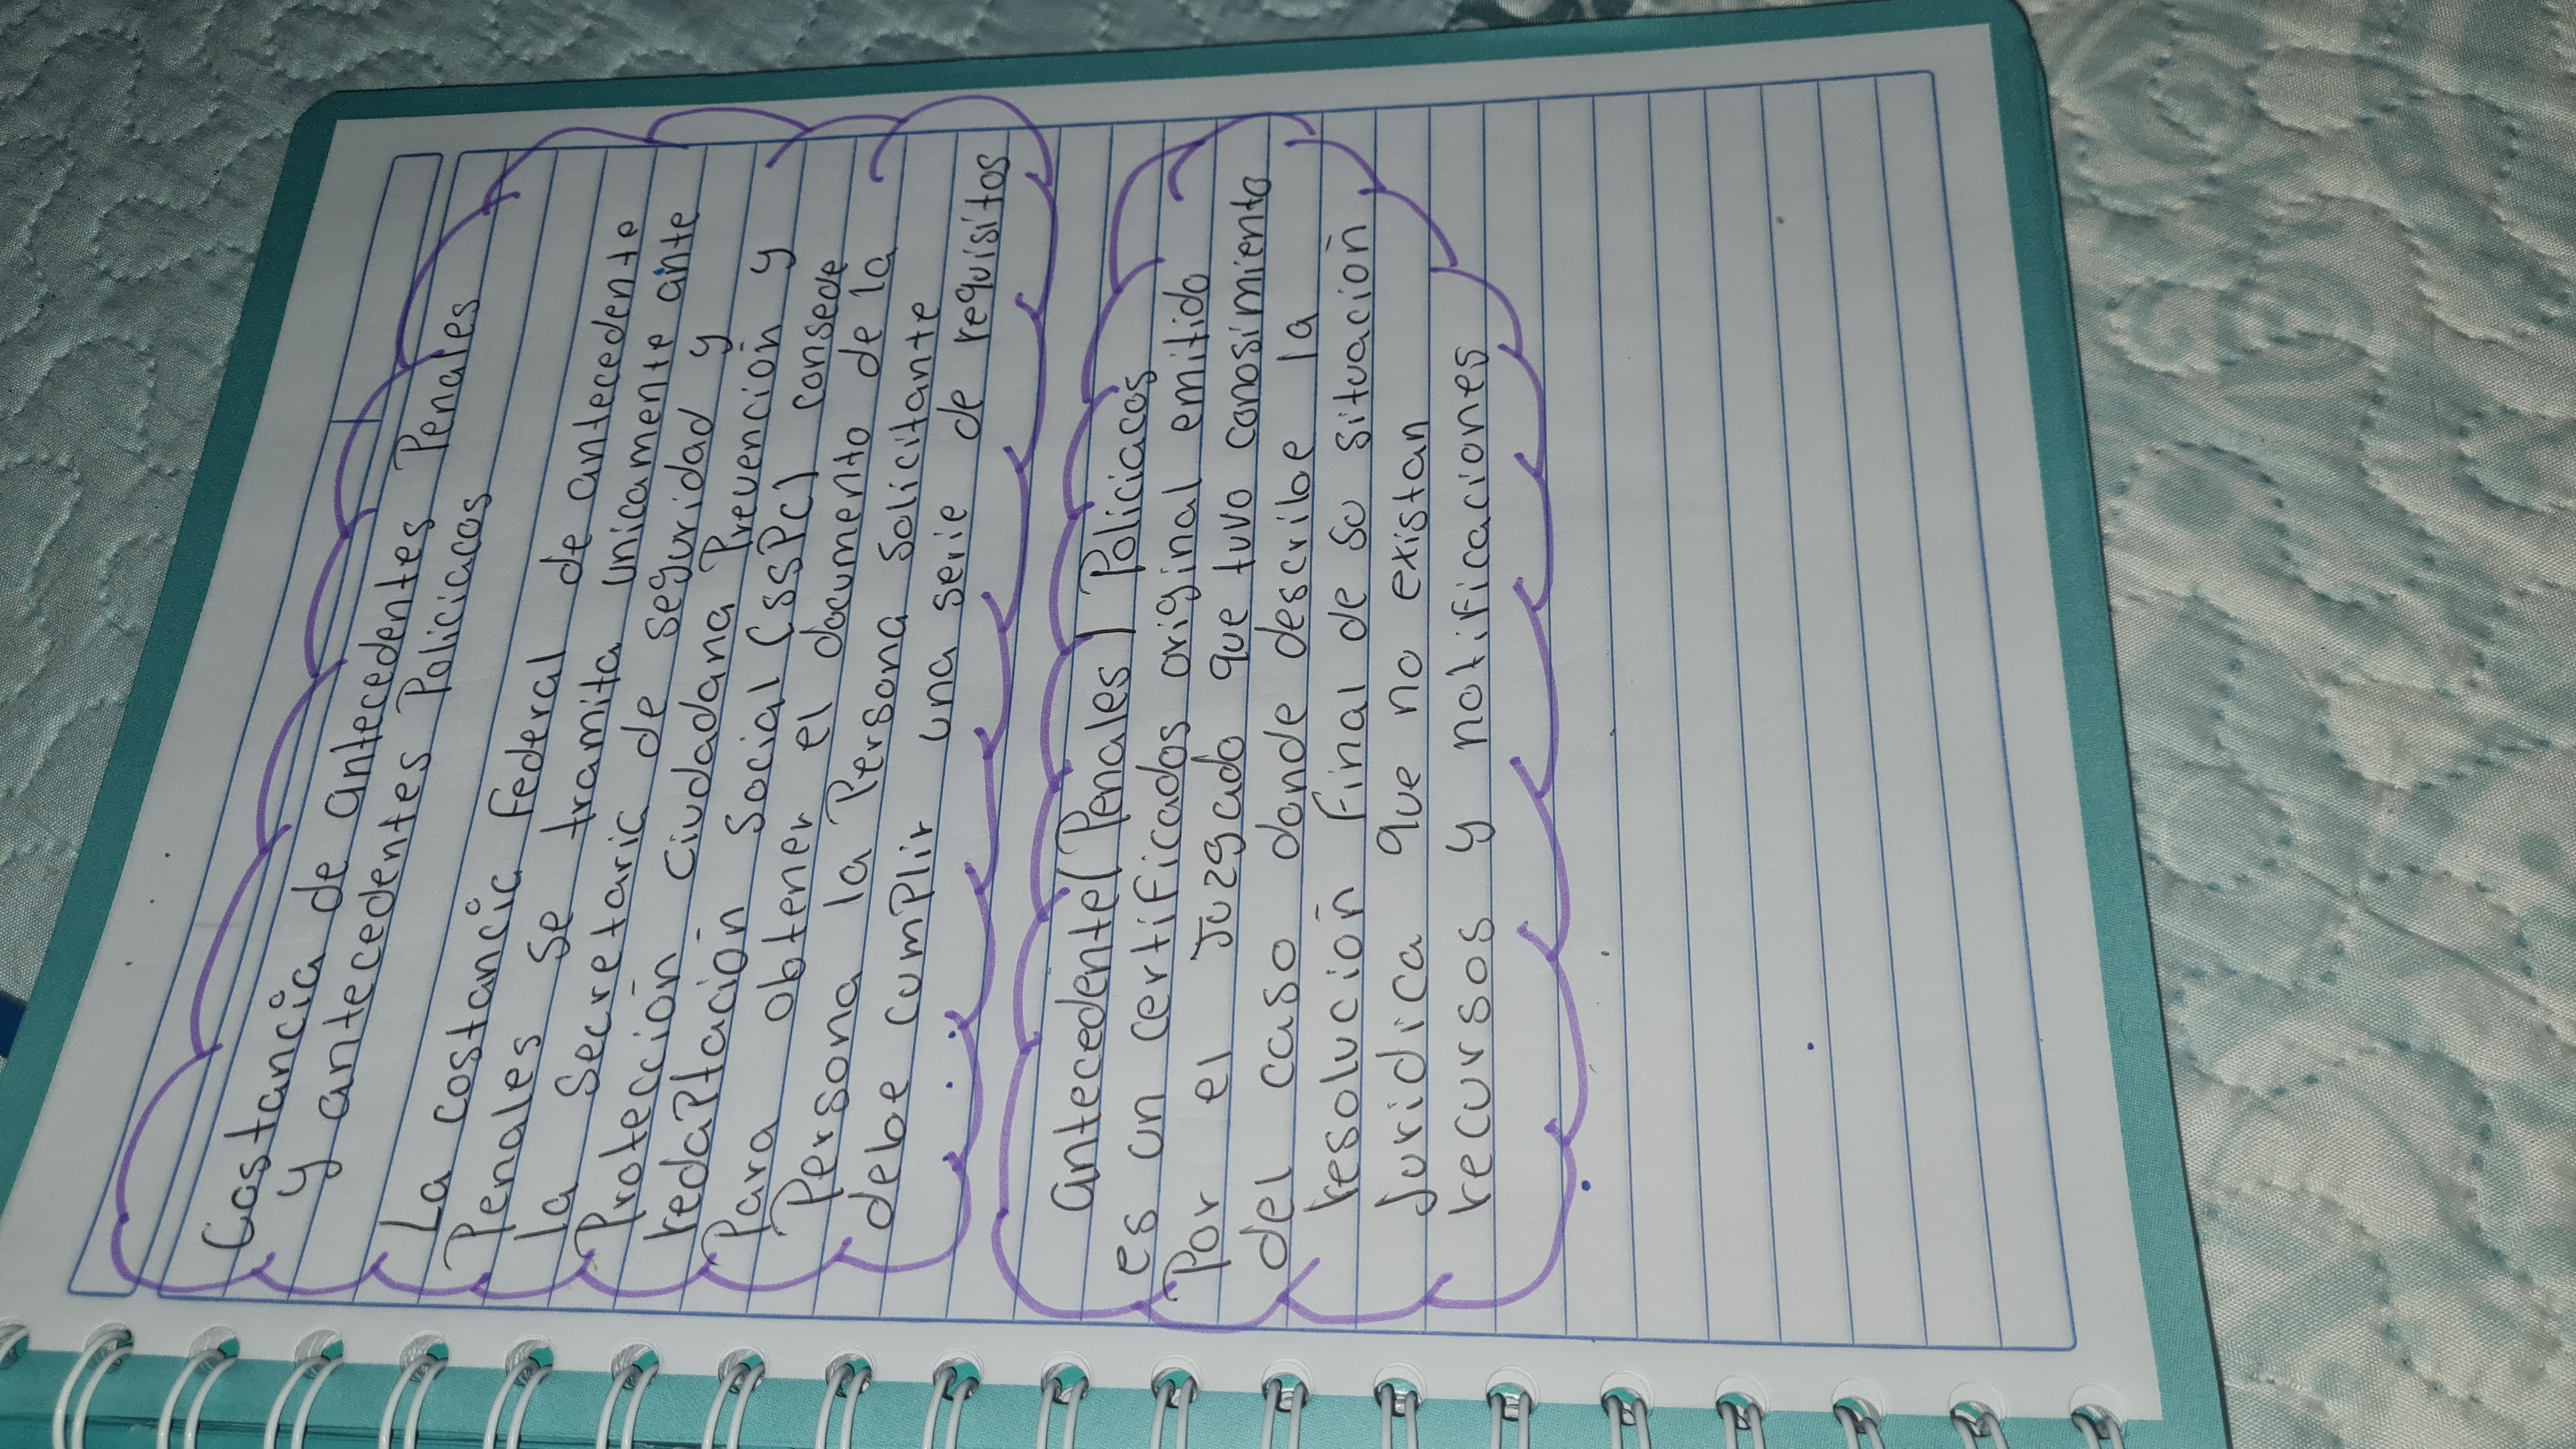 Costancia de antecedentes Penales
y antecedentes Policicacos
La costancia Federal de antecedente
Penales se tramita unicamente ante
la Secretaria de seguridad y
Protección ciudadana Prevención y
redaptación social (ssPc) consede
Para obtener el documento de la
Persona la Persona solicitante
debe cumplir una serie de requisitos
antecedente(Penales) Policiacos
es un certificados original emitido
Por el Juzgado que tuvo conosimiento
del caso donde describe la
resolución Final de su situación
Juridica que no existan
recursos y notificaciones